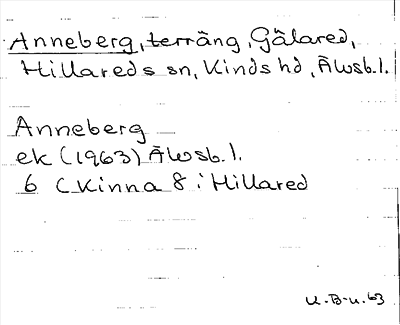 Anneberg, terräng, Gålared,
Hillareds sn, Kinds hd, Älvsb. l.
Anneberg
ek (1963) Älvsb. l.
6 C Kinna 8 i Hillared
U.B-n. 63